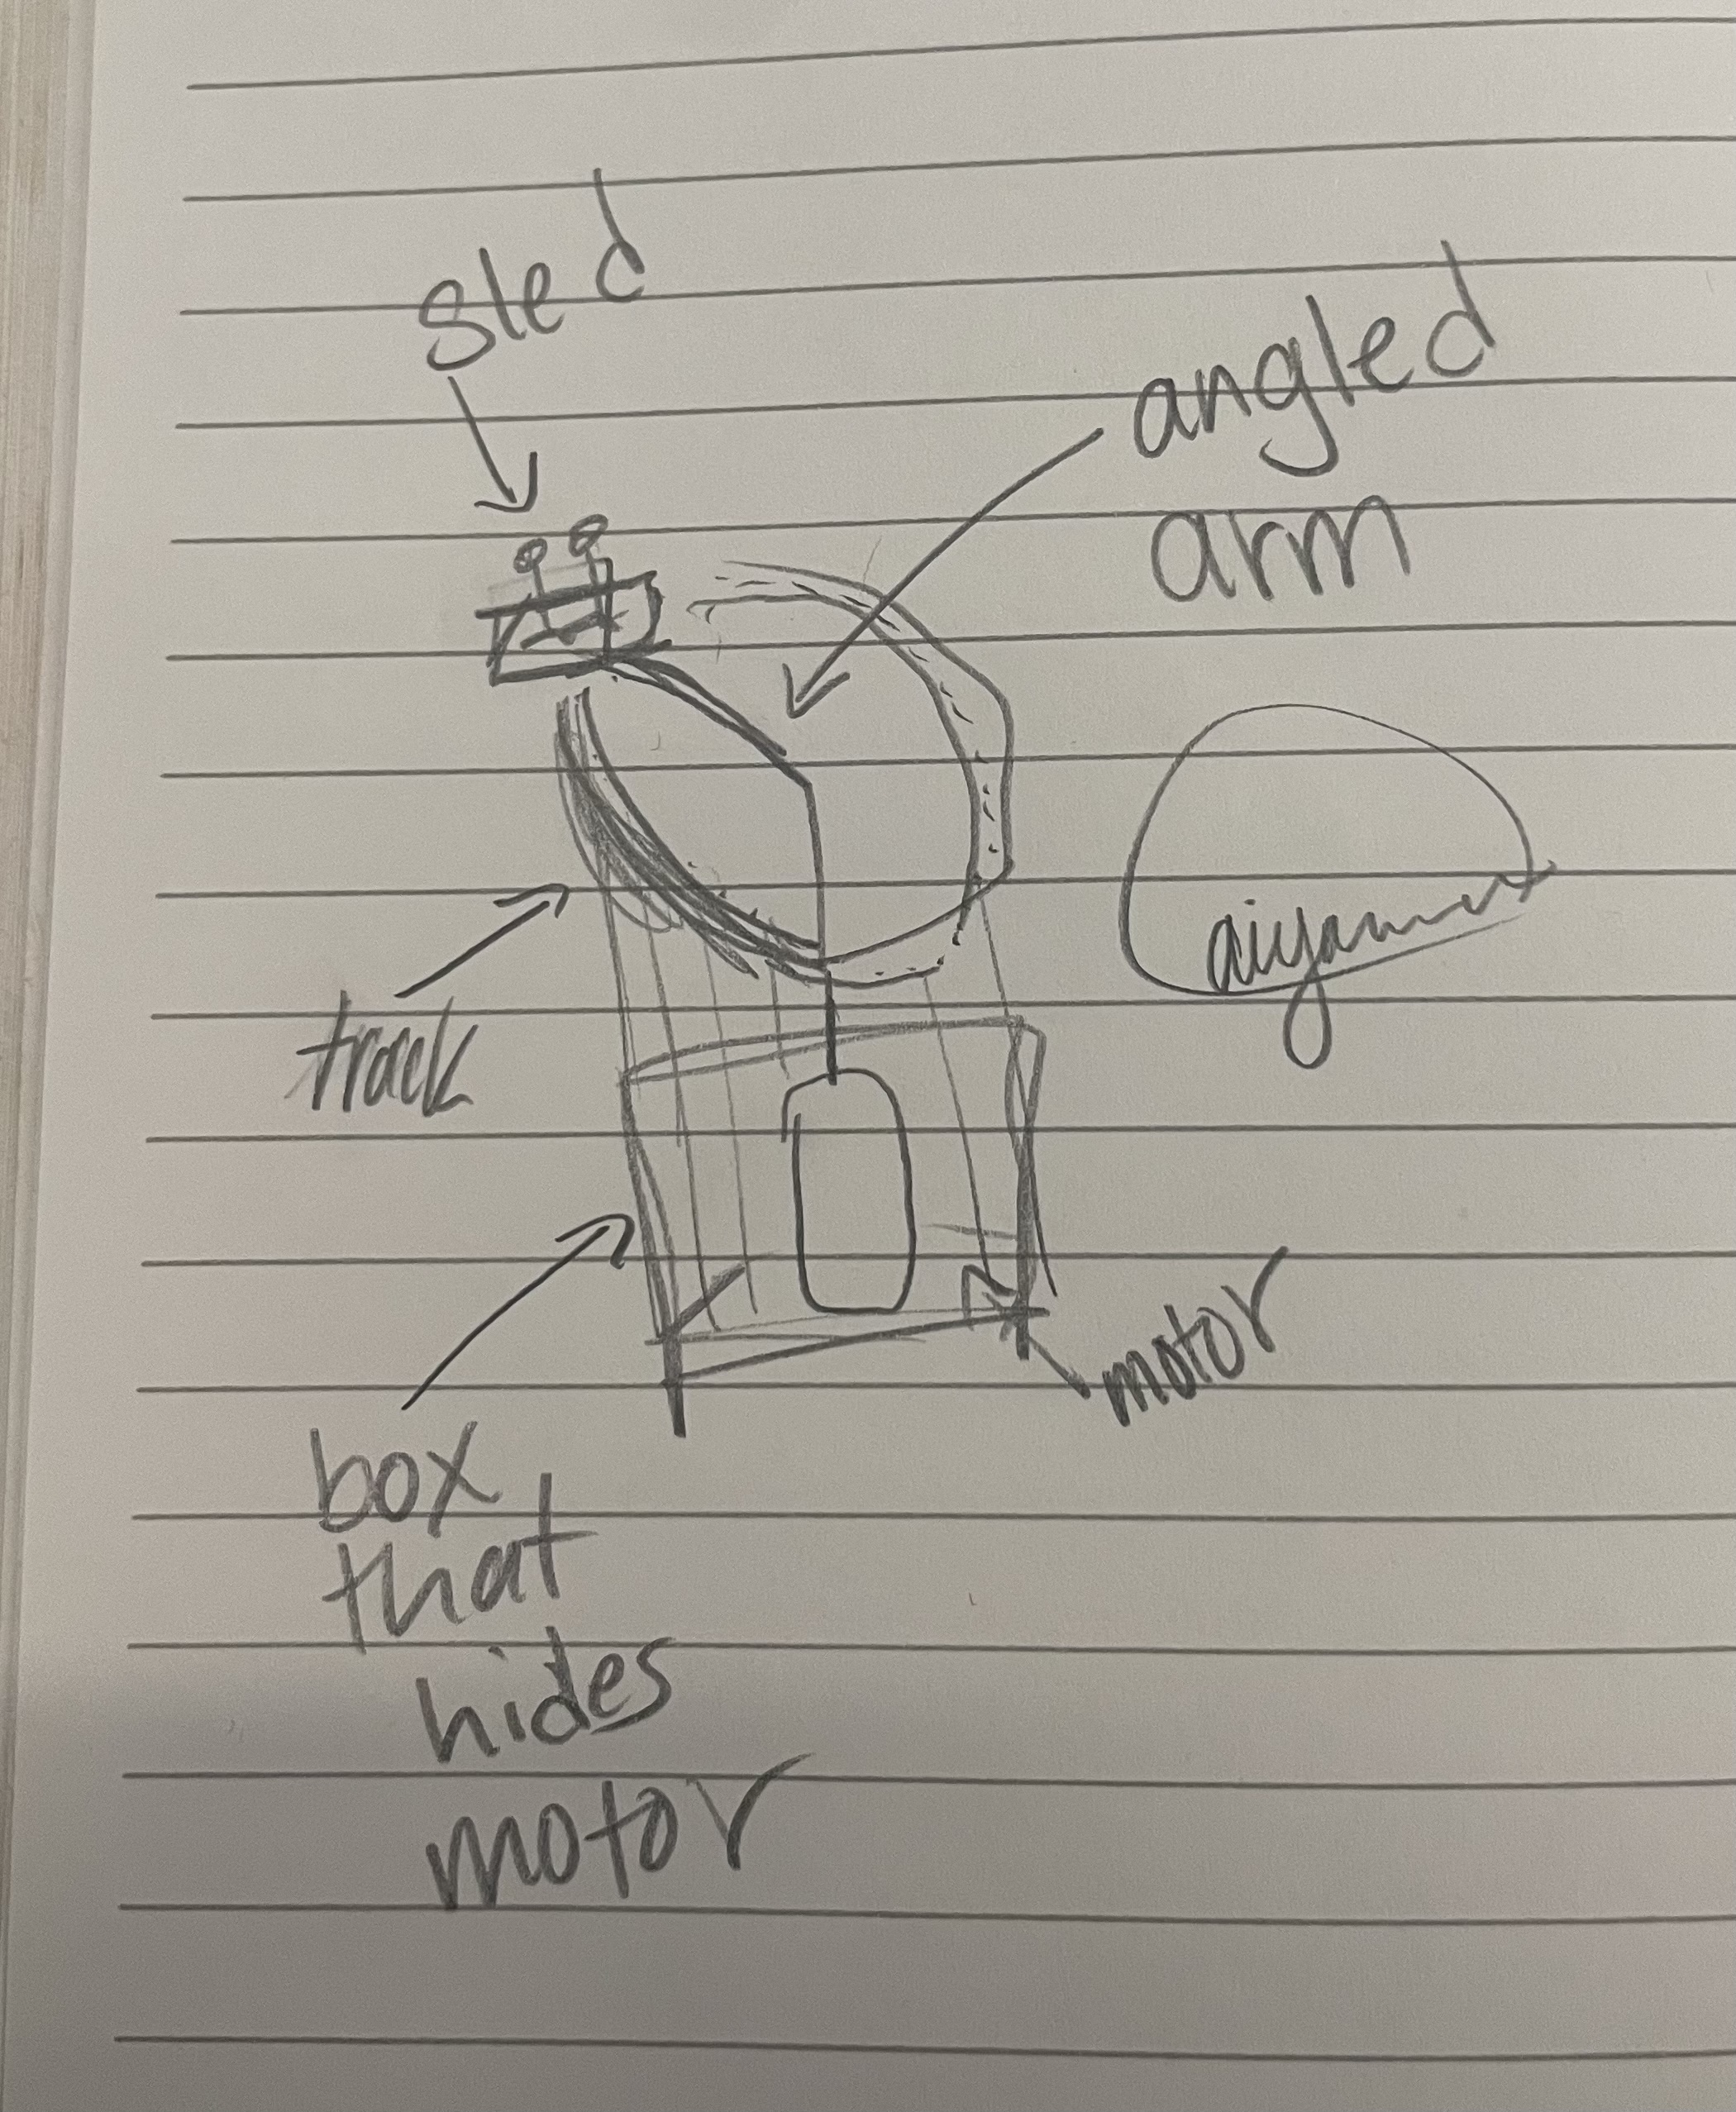 sled
angled
arm
track
motor
box
that
hides
motor